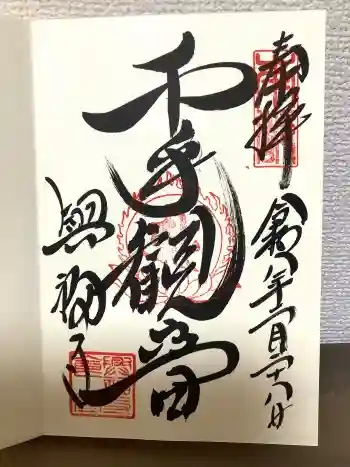 奉拝
千手觀音
令和年月二十八日
興福寺